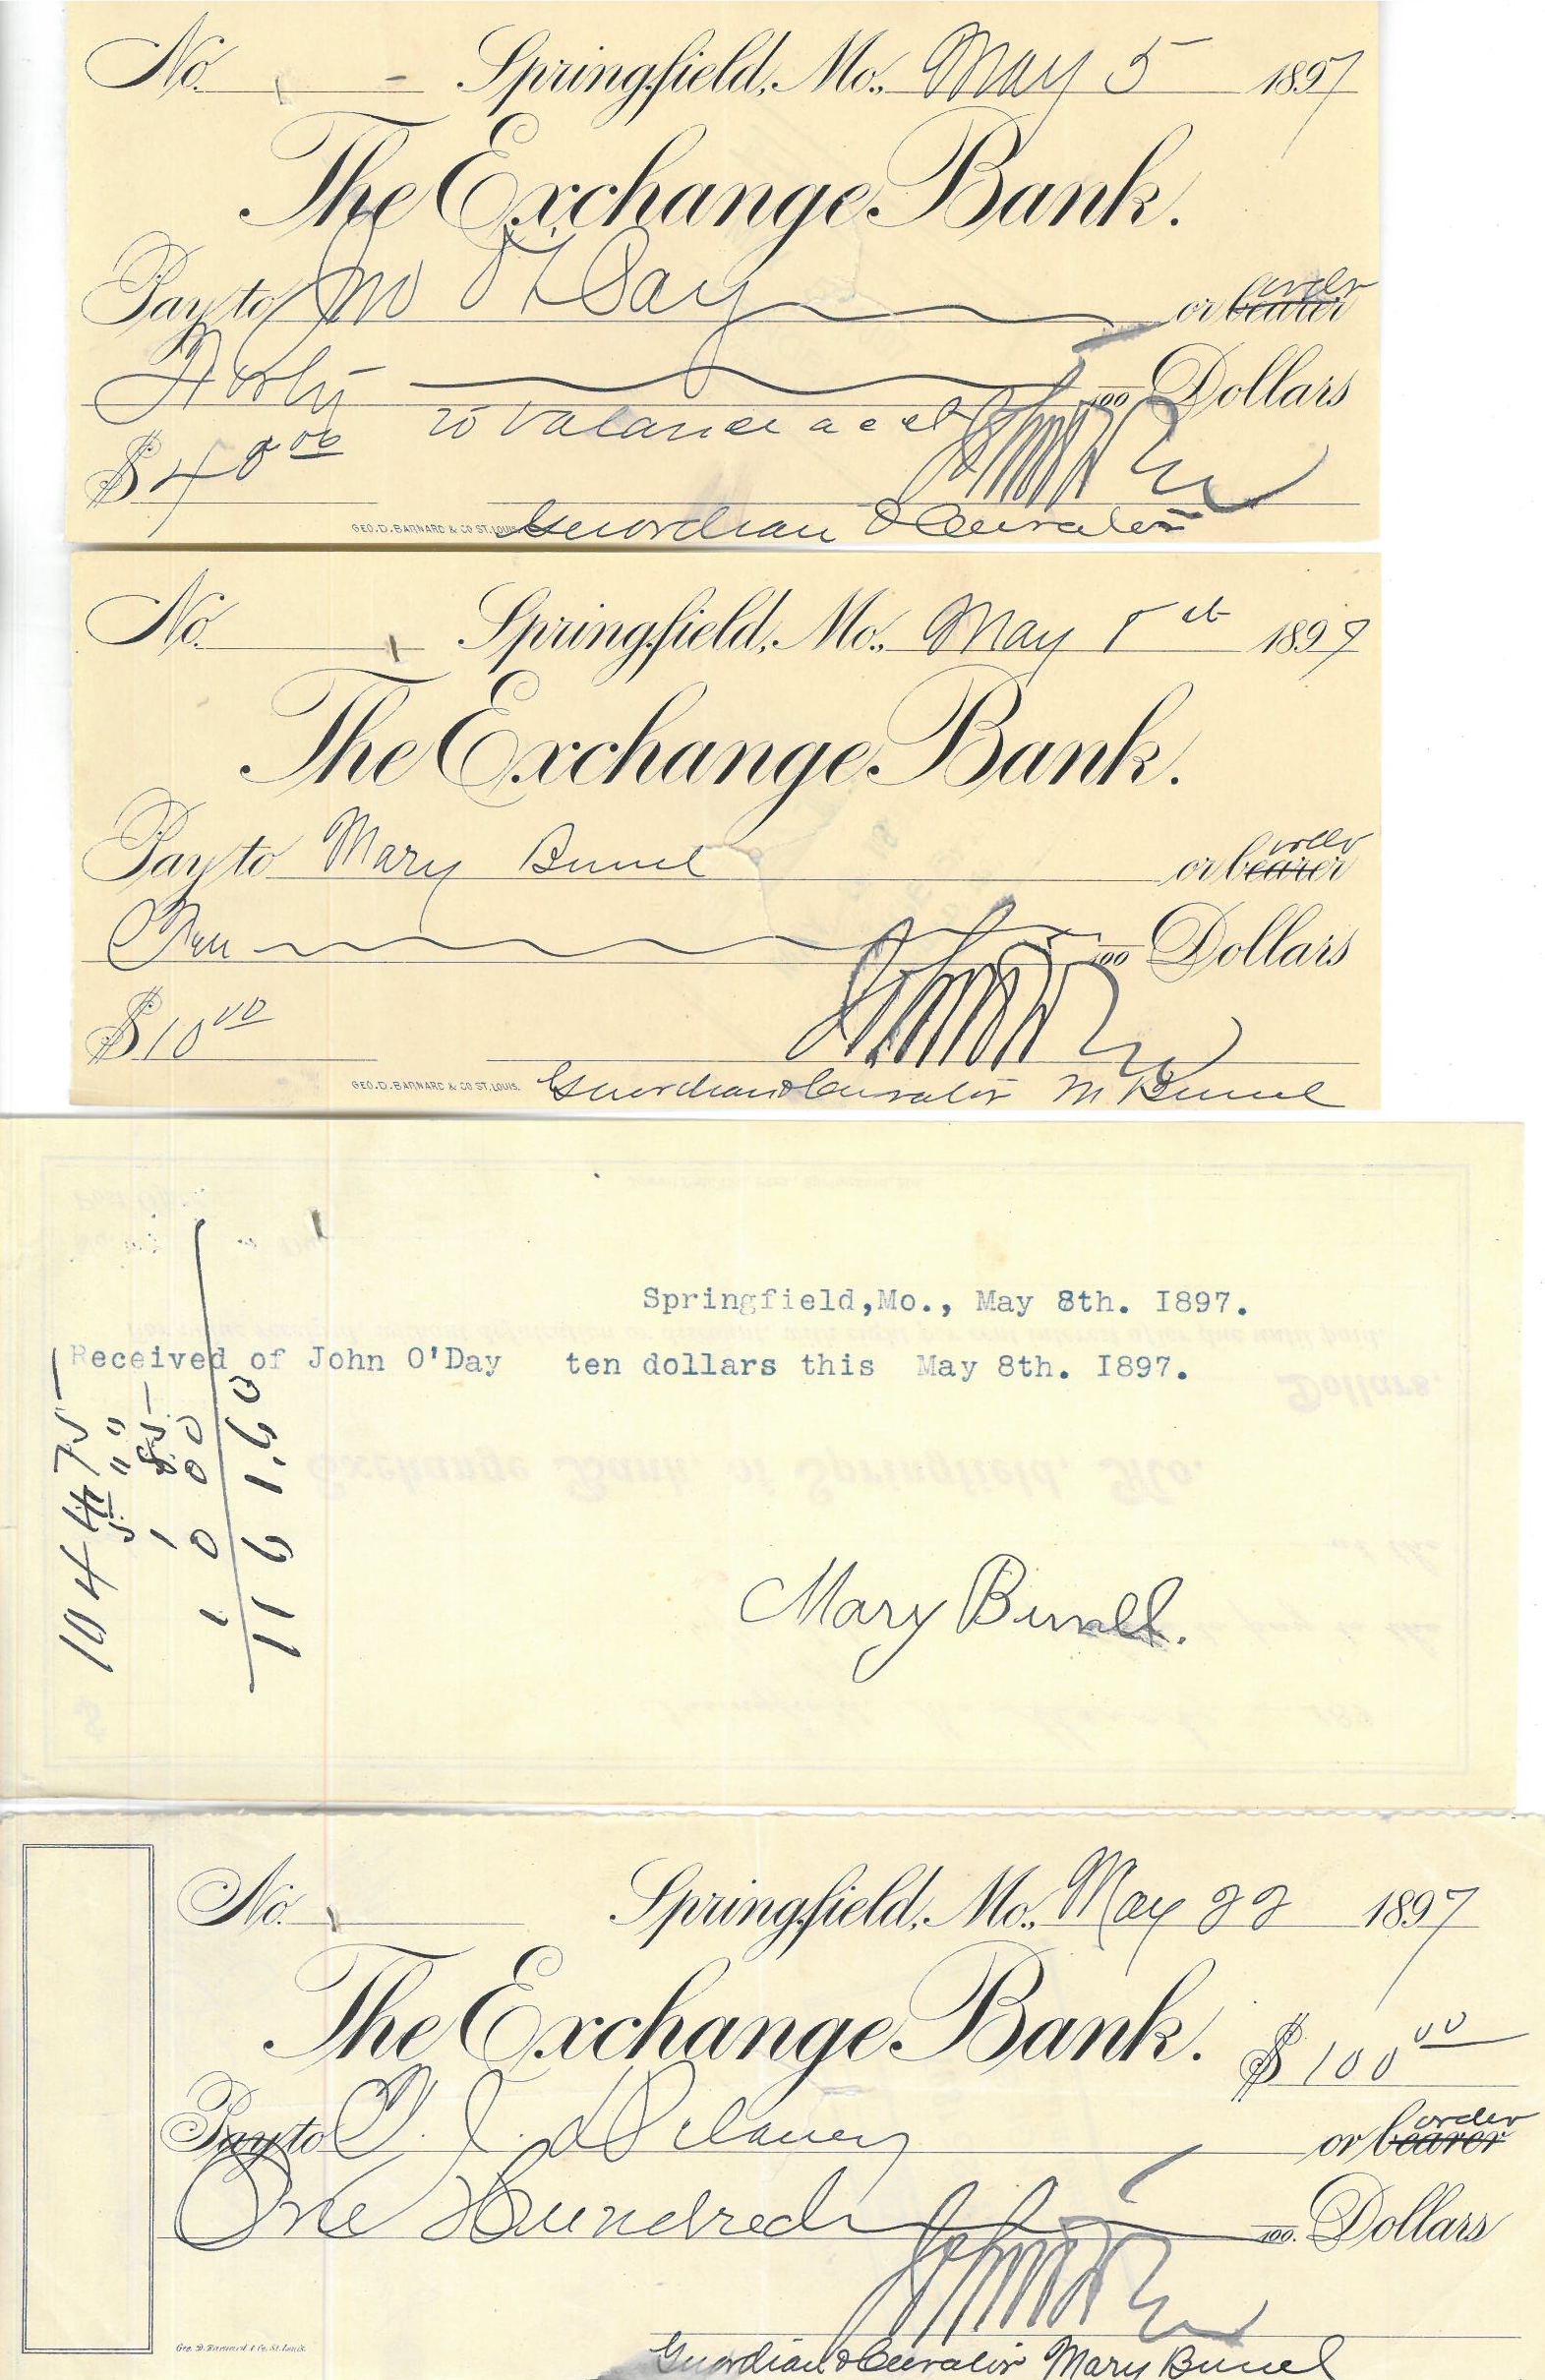 No. Springfield, Mo., May 5 1897
The Exchange Bank.
Pay to Jno O'Day or bearer order
Forty 100 Dollars
$40 00 to balance acct
Guardian & Curator
GEO. D. BARNARD & CO ST. LOUIS.
No. Springfield, Mo., May 1897
The Exchange Bank.
Pay to Mary Bunel or bearer order
Ten 100 Dollars
$10 00
GEO. D. BARNARD & CO ST. LOUIS. Guardian & Curator M Bunel
Springfield,Mo., May 8th. I897.
Received of John O'Day ten dollars this May 8th. I897.
Mary Bunell.
No. Springfield, Mo., May 22 1897
The Exchange Bank.
$100 00
Pay to O. J. Delaney or bearer order
One Hundred 100. Dollars
Geo. D. Barnard & Co. St. Louis.
Guardian & Curator Mary Bunel